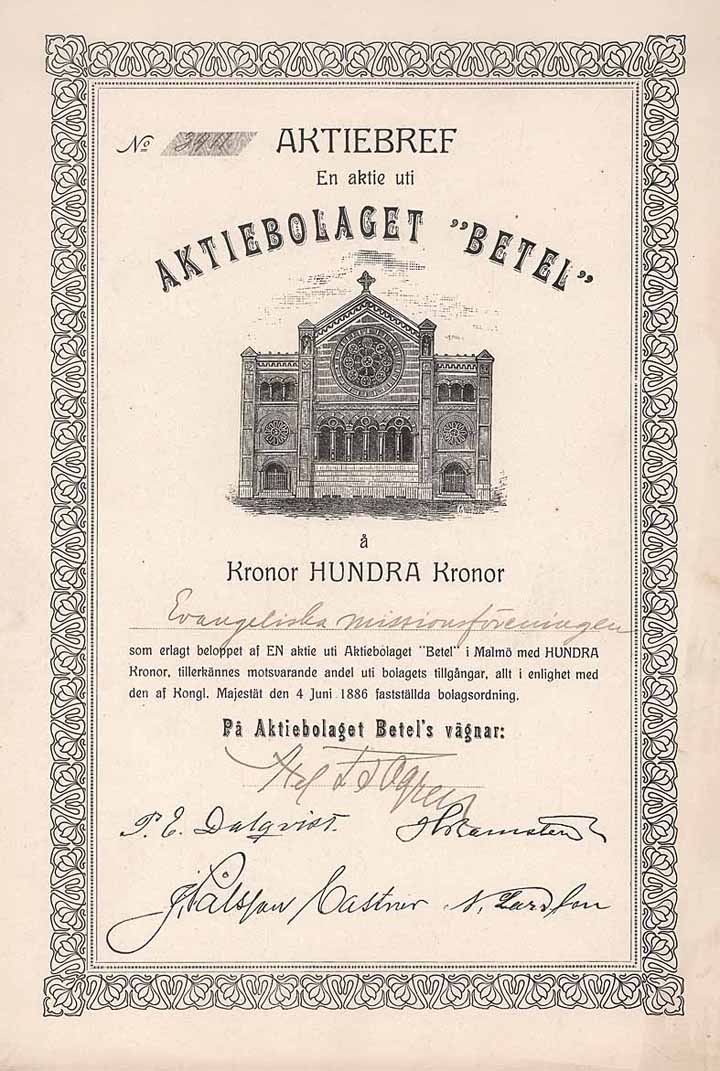 No 3911 AKTIEBREF
En aktie uti
AKTIEBOLAGET "BETEL"
å
Kronor HUNDRA Kronor
Evangeliska missionsföreningen
som erlagt beloppet af EN aktie uti Aktiebolaget "Betel" i Malmö med HUNDRA
Kronor, tillerkännes motsvarande andel uti bolagets tillgångar, allt i enlighet med
den af Kongl. Majestät den 4 Juni 1886 fastställda bolagsordning.
På Aktiebolaget Betel's vägnar:
P. E. Dalqvist.
J. Pålsson Castner N. Larsson